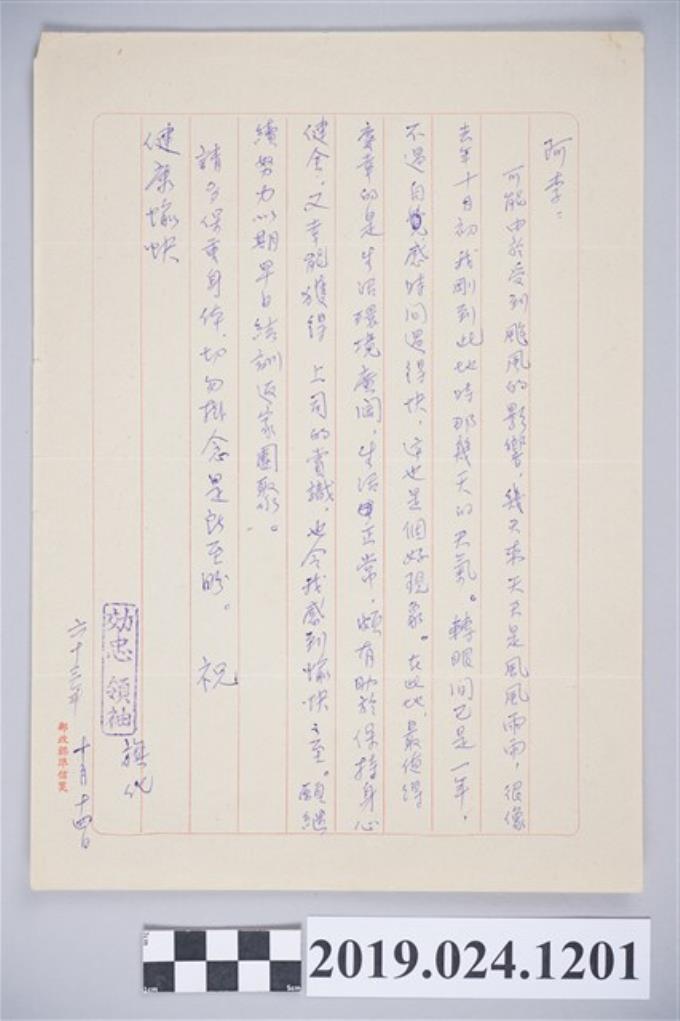 阿李：
可能由於受到颱風的影響，幾天來天天是風風雨雨，很像
去年十月初我剛到此地時那幾天的天氣。轉眼間已是一年，
不過自覺感時間過得快，這也是個好現象。在此地，最值得
慶幸的是生活環境廣闊，生活正常，頗有助於保持身心
健全，又幸能獲得 上司的賞識，也令我感到愉快之至。願繼
續努力以期早日結訓返家團聚。
請多保重身体，切勿掛念是所至盼。 祝
健康愉快
效忠領袖
旗化
六十三年十月十四日
郵政標準信箋
2019.024.1201
1cm
5cm